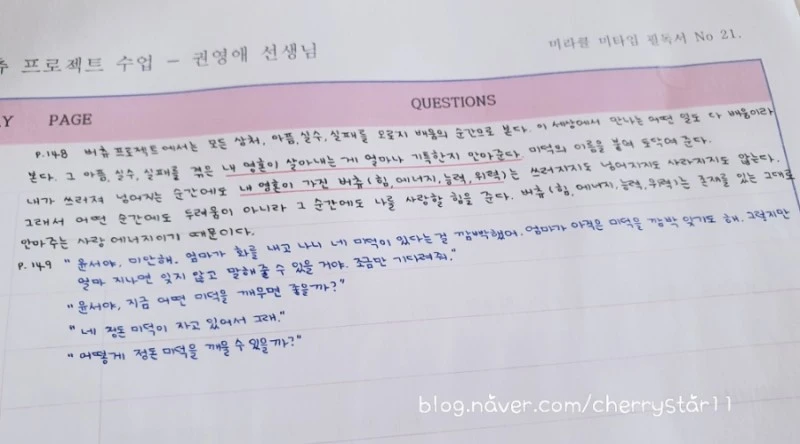 추 프로젝트 수업 - 권영애 선생님
미라클 미타임 필독서 No 21.
Y PAGE QUESTIONS
p.148 버츄 프로젝트에서는 모든 상처, 아픔, 실수, 실패를 오로지 배움의 순간으로 본다. 이 세상에서 만나는 어떤 일도 다 배움이라
본다. 그 아픔, 실수, 실패를 겪은 내 영혼이 살아내는 게 얼마나 기특한지 안아준다. 미덕의 이름을 붙여 도닥여 준다.
내가 쓰러져 넘어지는 순간에도 내 영혼이 가진 버츄(힘, 에너지, 능력, 위력)는 쓰러지지도 넘어지지도 사라지지도 않는다.
그래서 어떤 순간에도 두려움이 아니라 그 순간에도 나를 사랑할 힘을 준다. 버츄(힘, 에너지, 능력, 위력)는 존재를 있는 그대로
안아주는 사랑 에너지이기 때문이다.
p.149 "윤서야, 미안해. 엄마가 화를 내고 나니 네 미덕이 있다는 걸 깜빡했어. 엄마가 아직은 미덕을 깜박 잊기도 해. 그렇지만
얼마 지나면 잊지 않고 말해줄 수 있을 거야. 조금만 기다려줘."
"윤서야, 지금 어떤 미덕을 깨우면 좋을까?"
"네 정돈 미덕이 자고 있어서 그래."
"어떻게 정돈 미덕을 깨울 수 있을까?"
blog.naver.com/cherrystar11